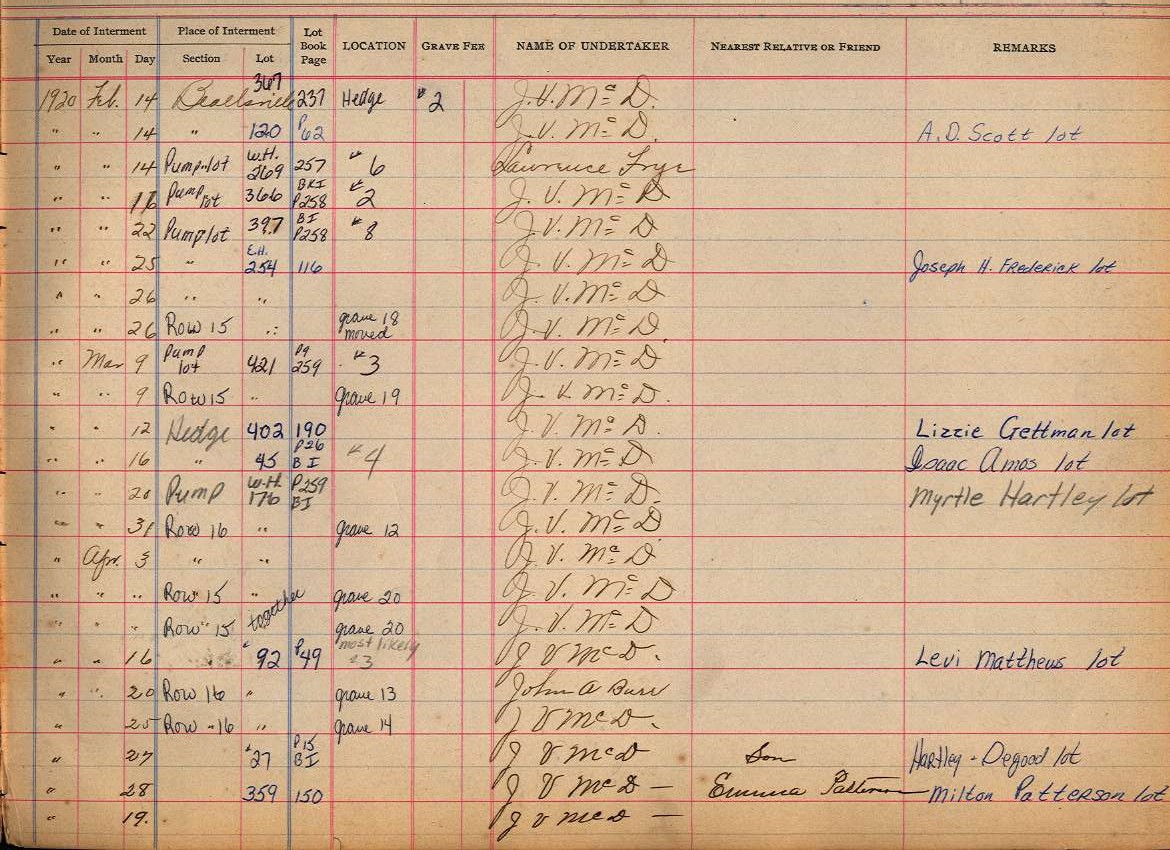 Date of Interment Place of Interment Lot Book Page LOCATION GRAVE FEE NAME OF UNDERTAKER NEAREST RELATIVE OR FRIEND REMARKS
Year Month Day Section Lot
1920 Feb. 14 Beallsville 367 237 Hedge #2 J. V. McD.
" " 14 " 120 P62 J. V. McD. A.D. Scott lot
" " 14 Pump lot W.H. 269 257 #6 Lawrence Frye
" " Pump lot 366 BKI P258 #2 J. V. McD
" " 22 Pump lot 397 BI P258 #8 J. V. McD
" " 25 " E.H. 254 116 J. V. McD Joseph H. Frederick lot
" " 26 " " J. V. McD
" " 26 Row 15 " grave 18 moved J. V. McD
" Mar 9 Pump lot 421 Pg 259 #3 J. V. McD
" " 9 Row 15 " grave 19 J. V. McD.
" " 12 Hedge 402 190 J. V. McD. Lizzie Gettman lot
" " 16 " 45 P26 BI #4 J. V. McD Isaac Amos lot
" " 20 Pump W.H. 176 P259 BI J. V. McD. Myrtle Hartley lot
" " 31 Row 16 " grave 12 J. V. McD
" Apr. 3 " " J. V. McD
" " " Row 15 " grave 20 J. V. McD
" " " Row 15 together grave 20 J. V. McD
" " 16 " 92 P49 most likely #3 J V McD. Levi Matthews lot
" " 20 Row 16 " grave 13 John A Burr
" 25 Row 16 " grave 14 J V McD.
" 27 27 P15 BI J V McD Son Hartley - Degood lot
" 28 359 150 J V McD — Emma Patterson Milton Patterson lot
" 19. J V McD —